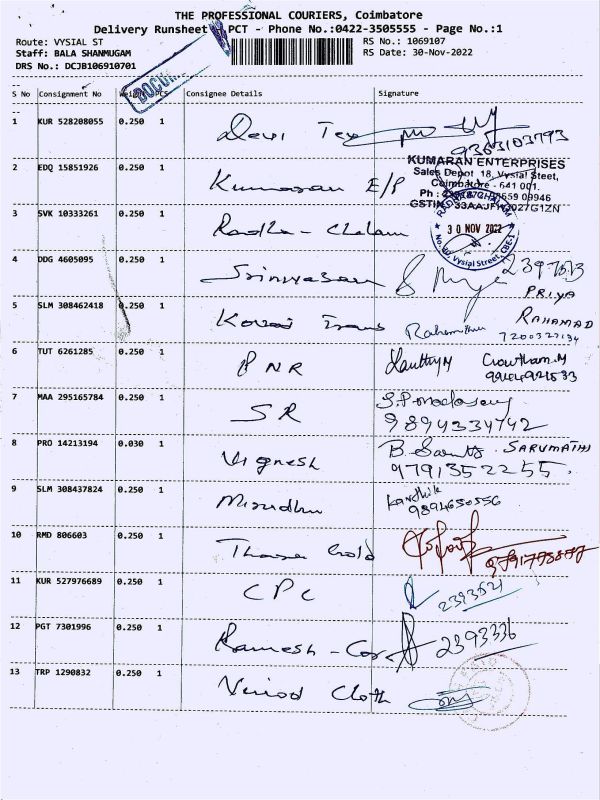 THE PROFESSIONAL COURIERS, Coimbatore
Delivery Runsheet PCT - Phone No.:0422-3505555 - Page No.:1
Route: VYSIAL ST
RS No.: 1069107
Staff: BALA SHANMUGAM
RS Date: 30-Nov-2022
DRS No.: DCJB106910701
DOCU
S No Consignment No Weight PCS Consignee Details Signature
1 KUR 528208055 0.250 1 Devi Tex
9363103793
KUMARAN ENTERPRISES
Sales Depot 18, Vysial Street,
Coimbatore - 641 001.
2 EDQ 15851926 0.250 1 Kumaran E/P
3 SVK 10333261 0.250 1 Radha - Chalam
30 NOV 2022
Vysial Street, CBE-1
4 DDG 4605095 0.250 1 Srinivasan
PRIYA
5 SLM 308462418 0.250 1 Kovai Trans
RAHAMAD
6 TUT 6261285 0.250 1 PNR Gowtham.M
7 MAA 295165784 0.250 1 SR
9894334742
8 PRO 14213194 0.030 1 Vignesh SARUMATHI
9791352255
9 SLM 308437824 0.250 1 Mirudhu Karthik
9894650556
10 RMD 806603 0.250 1 Gold
11 KUR 527976689 0.250 1 CPC 2393521
12 PGT 7301996 0.250 1 Ramesh - 2393336
13 TRP 1290832 0.250 1 Vinod Cloth